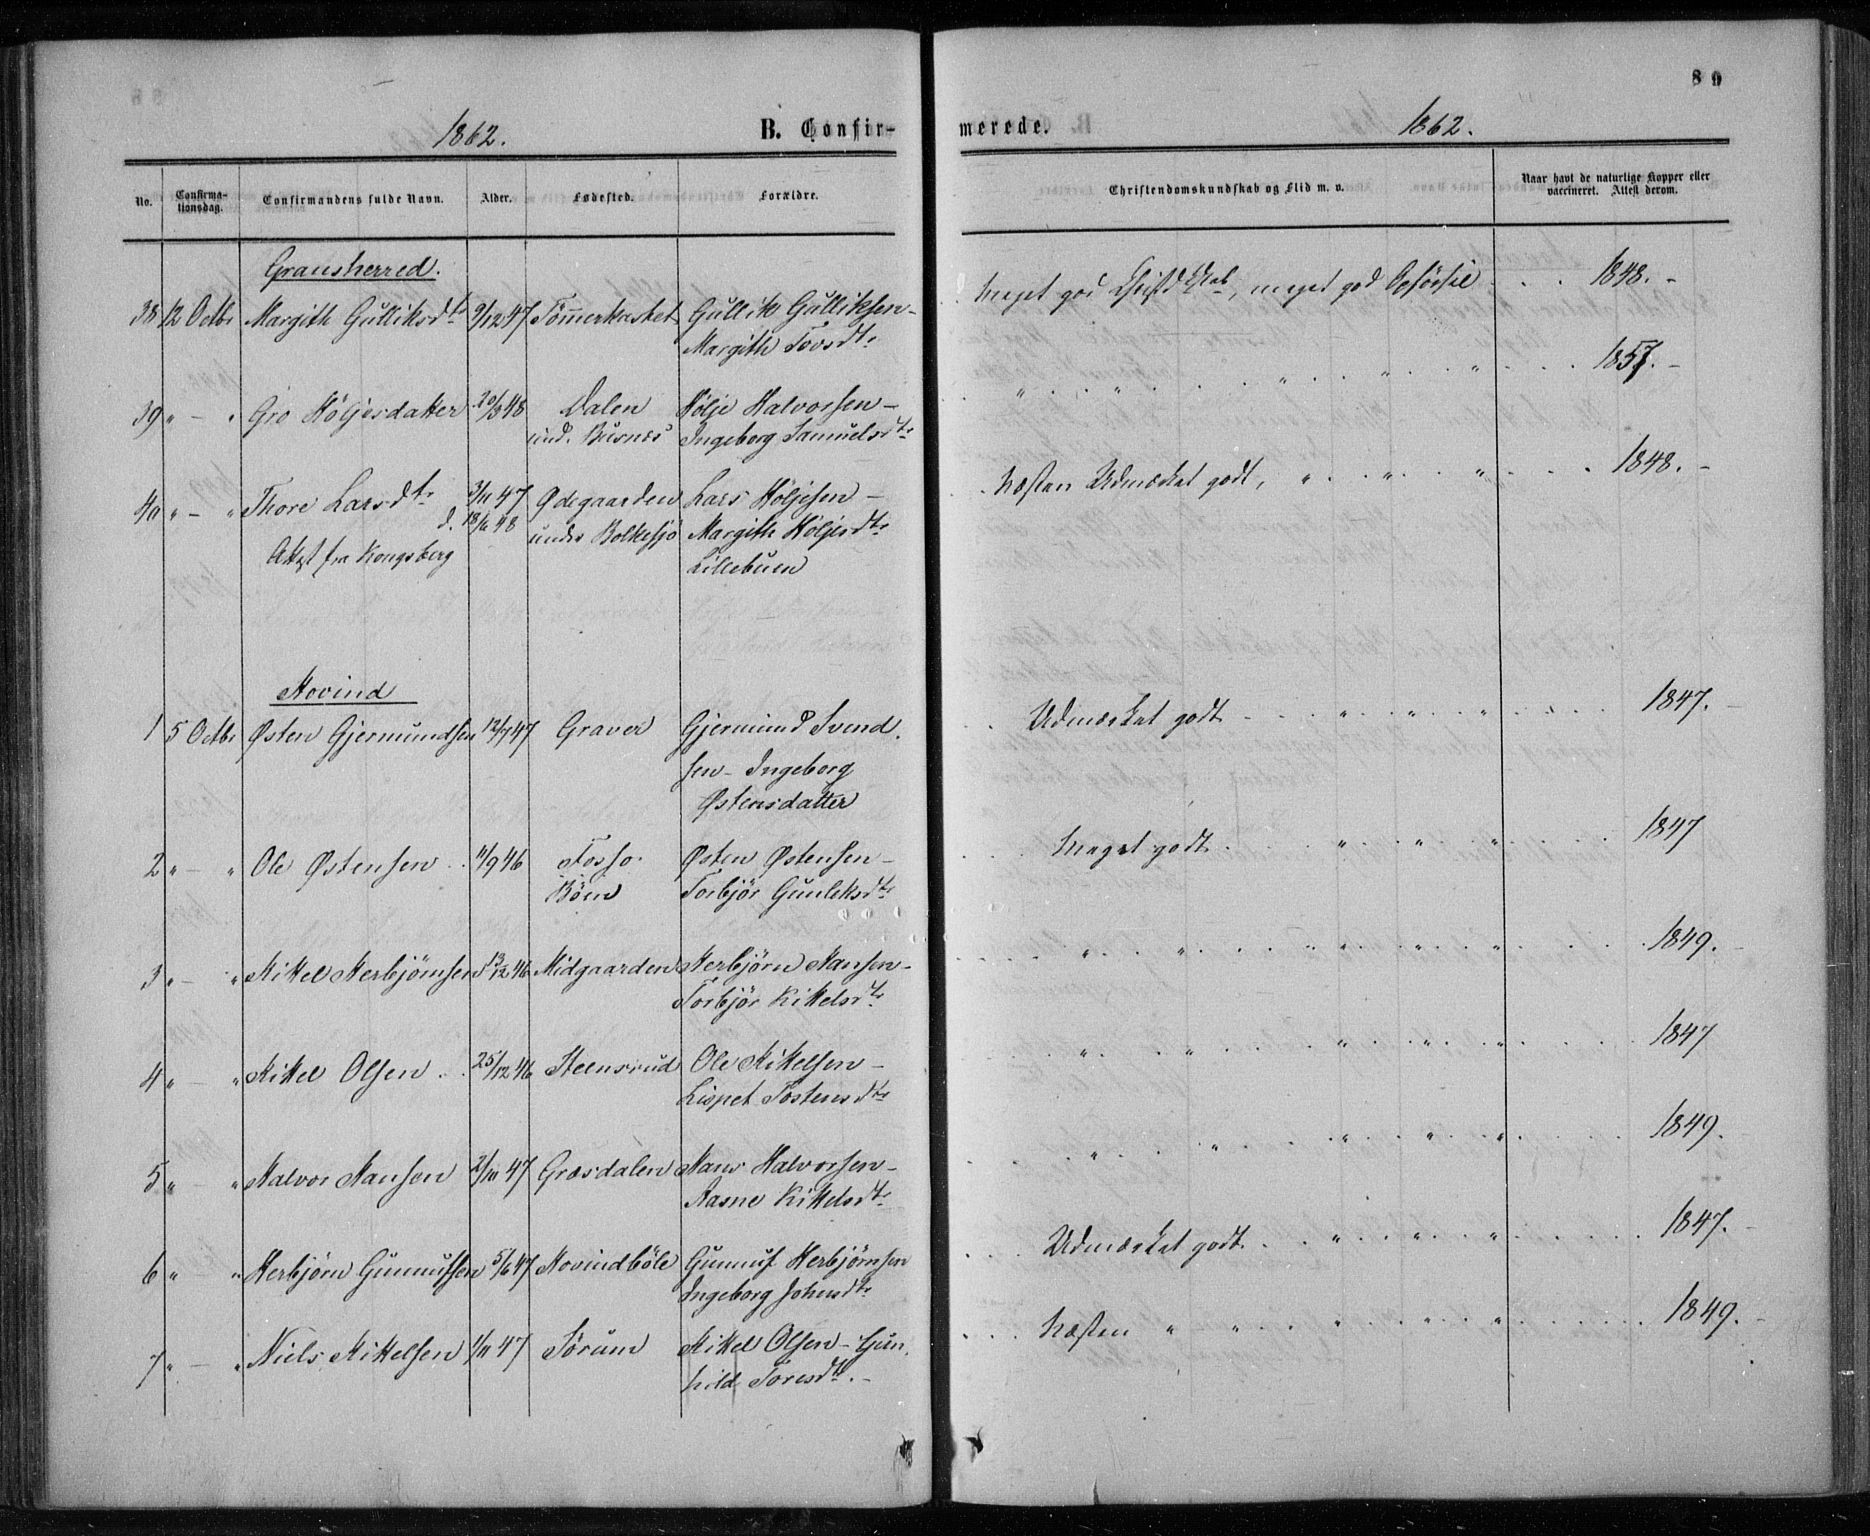 80
1862. B. Confirmerede. 1862.
No. Confirmationsdag. Confirmandens fulde Navn. Alder. Fødested. Forældre. Christendomskundskab og Flid m. v. Naar havt de naturlige Kopper eller vaccineret. Attest derom.
Gransherred.
38 12 Octbr Margith Gulliksdtr 9/12 47 Tømmerkastet Gulliks Gulliksen - meget god Christdskab, meget god Opførsel . . . 1848. -
Margith Tovsdtr
39 " - " Gro Höljesdatter 20/3 48 Dalen Hölje Halvorsen - " . " . . . " . " . " . . . 1857. -
und. Busnes Ingeborg Samuelsdtr
40 " - " Thore Larsdtr 3/11 47 Ødegaarden Lars Höljesen - Næsten Udmærket godt, " . " . " . . . 1848. -
d. 18/6 48 under Bolkesjö Margith Höljesdtr
Attest fra Kongsberg Lillebuen
Hovind
1 5 Octbr Østen Gjermundsen 12/7 47 Graver Gjermund Svend- Udmærket godt . . " . " . " . . . 1847. -
sen - Ingeborg
Østensdatter
2 " - " Ole Østensen . . 11/9 46 Fosso Østen Østensen - Meget godt . . . " . " . " . . . 1847
Böen Torbjör Gunleksdtr
3 " - " Kittel Herbjörnsen 13/12 46 Midgaarden Herbjörn Hansen - " . " . . " . " . " . . . 1849. -
Torbjör Kittelsdtr
4 " - " Kittel Olsen . . 25/12 46 Steensrud Ole Kittelsen - " . " . . " . " . " . . . 1847
Lispet Tostensdtr
5 " - " Halvor Hansen 2/10 47 Græsdalen Hans Halvorsen - " . " . . " . " . " . . . 1849.
Aasne Kittelsdtr
6 " - " Herbjörn Gunnufsen 5/6 47 Hovindböle Gunnuf Herbjörnsen Udmærket godt . . " . " . " . . . 1847. -
Ingeborg Johnsdtr
7 " - " Niels Kittelsen 1/11 47 Sörum Kittel Olsen - Gun- Næsten " " . " . " . " . . . 1849. -
hild Toresdtr. -